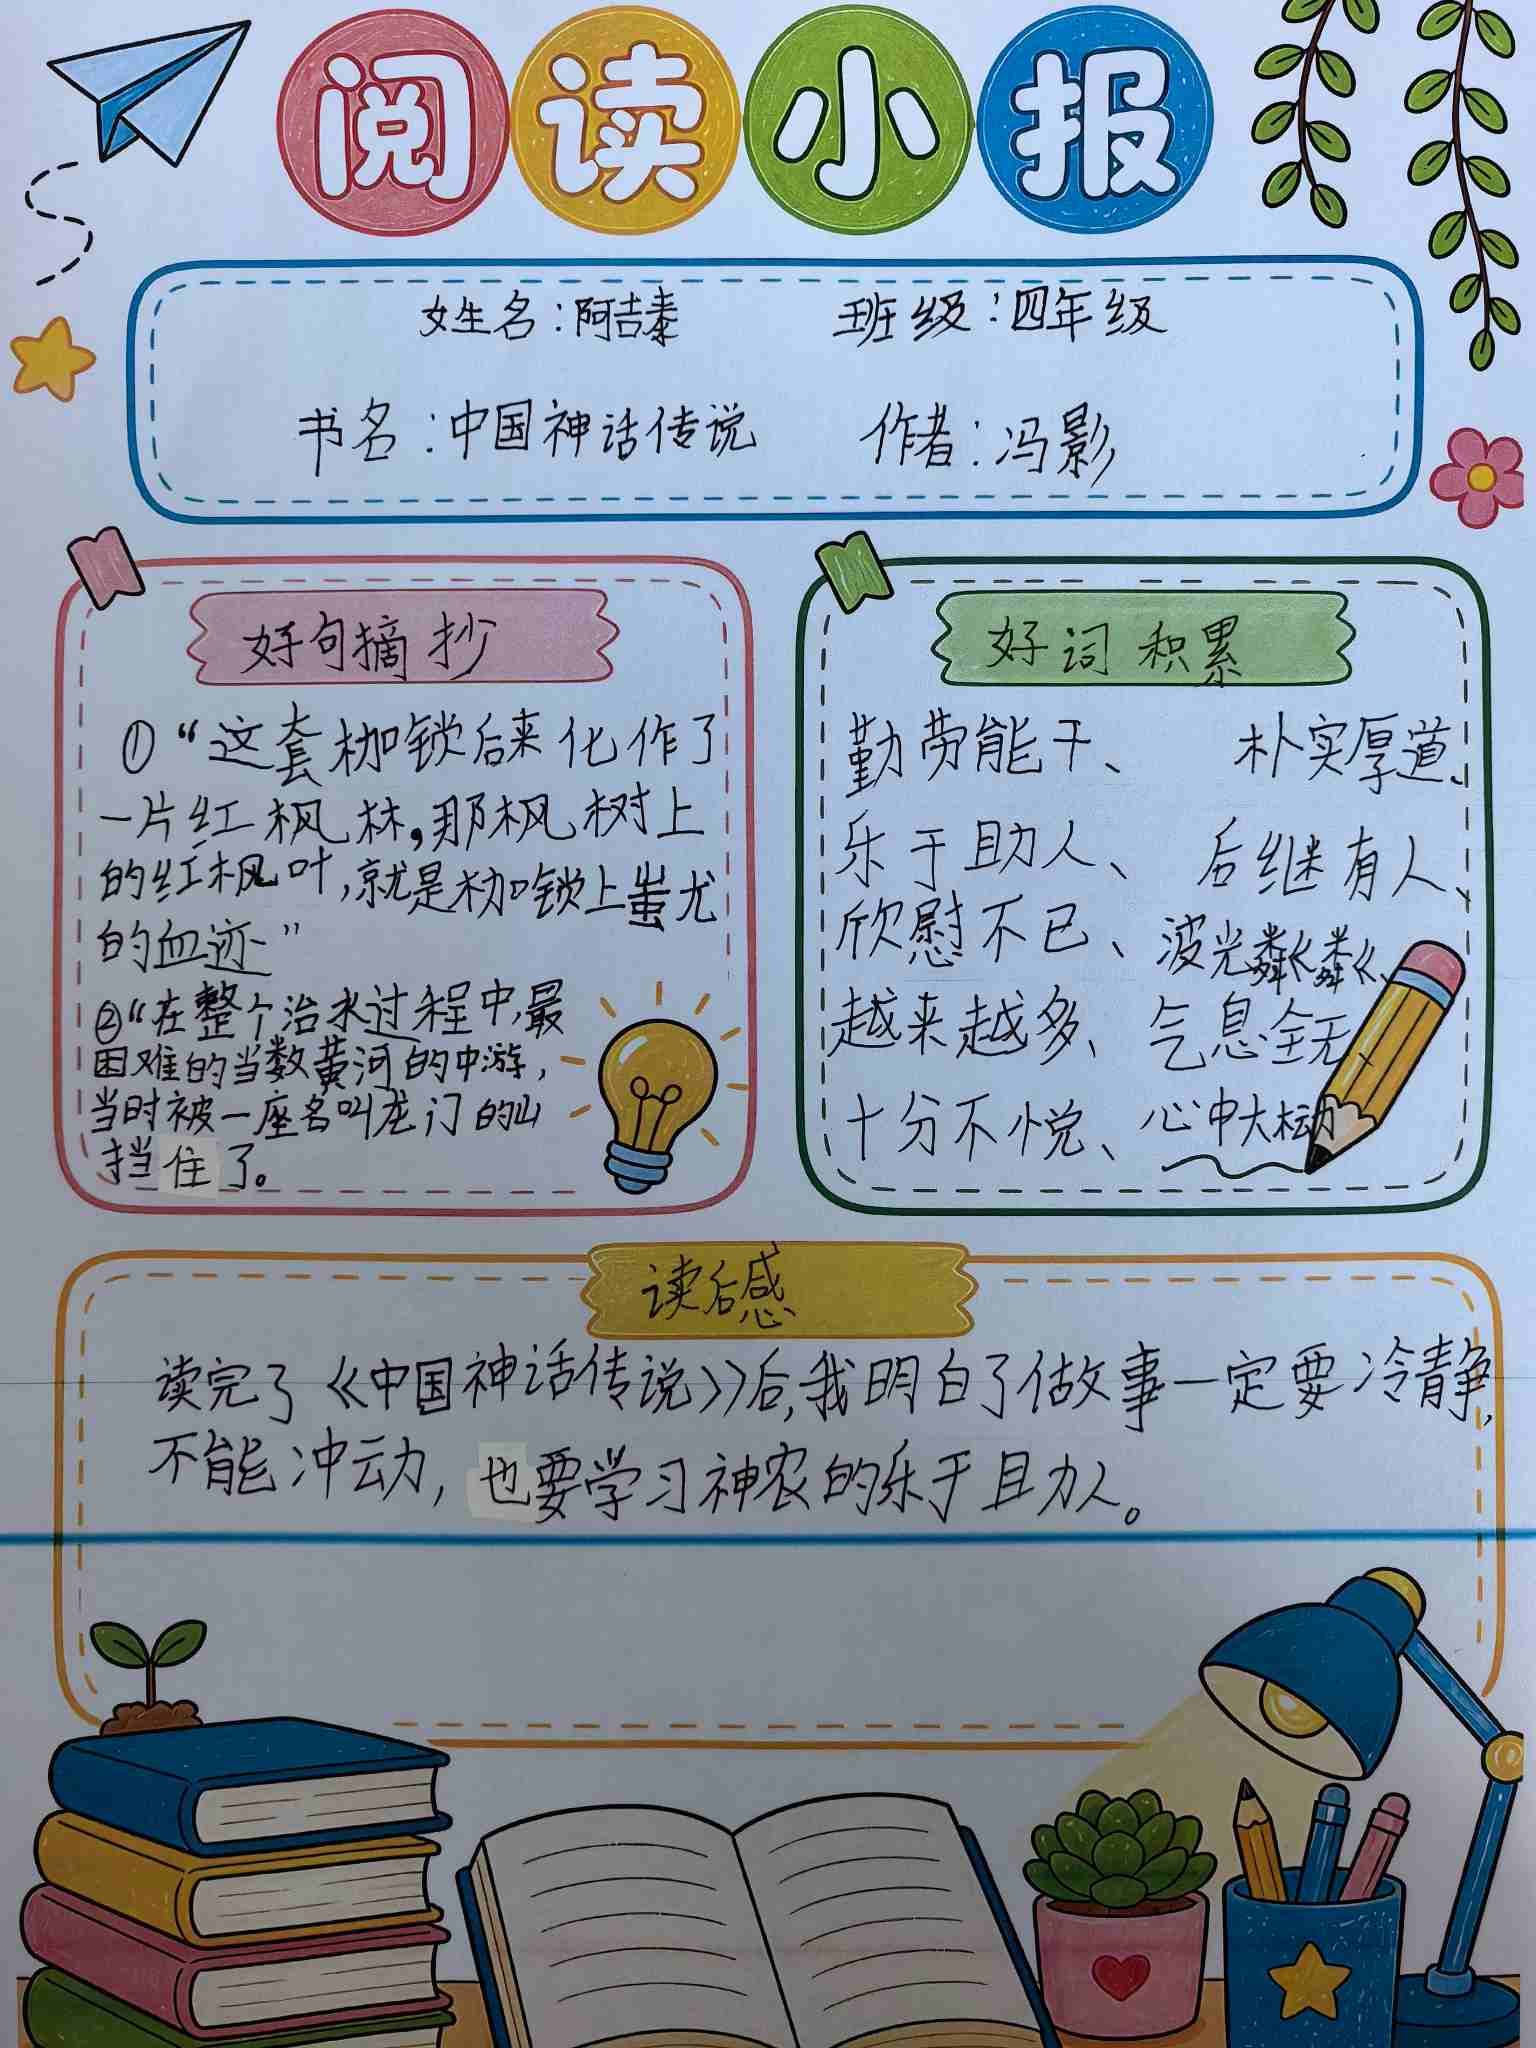 阅读小报
姓名：阿吉泰 班级：四年级
书名：中国神话传说 作者：冯影
好句摘抄
①“这套枷锁后来化作了
一片红枫林，那枫树上
的红枫叶，就是枷锁上蚩尤
的血迹”
②“在整个治水过程中，最
困难的当数黄河的中游，
当时被一座名叫龙门的山
挡住了。
好词积累
勤劳能干、 朴实厚道、
乐于助人、 后继有人、
欣慰不已、波光粼粼、
越来越多、气息全无、
十分不悦、心中大动
读后感
读完了《中国神话传说》后，我明白了做事一定要冷静，
不能冲动，也要学习神农的乐于助人。